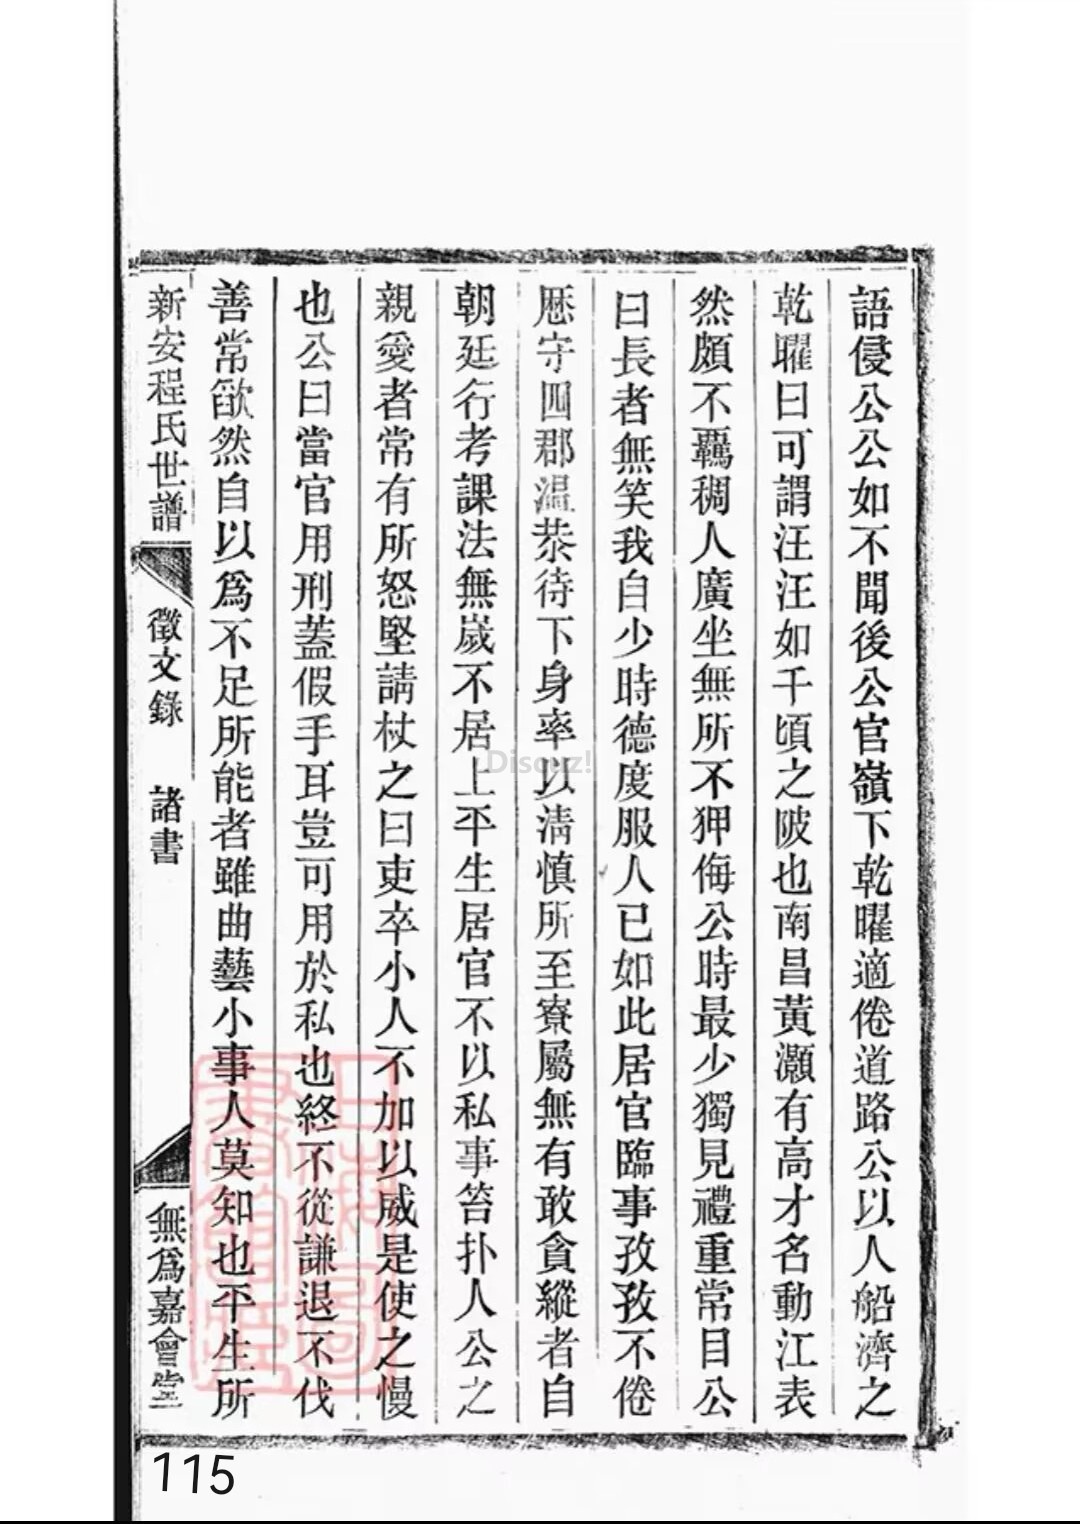 語侵公公如不聞後公官嶺下乾曜適倦道路公以人船濟之
乾曜曰可謂汪汪如千頃之陂也南昌黃灝有高才名動江表
然頗不羈稠人廣坐無所不狎侮公時最少獨見禮重常目公
曰長者無笑我自少時德度服人已如此居官臨事孜孜不倦
歷守四郡溫恭待下身率以淸慎所至寮屬無有敢貪縱者自
朝廷行考課法無歲不居上平生居官不以私事笞扑人公之
親愛者常有所怒堅請杖之曰吏卒小人不加以威是使之慢
也公曰當官用刑蓋假手耳豈可用於私也終不從謙退不伐
善常歉然自以爲不足所能者雖曲藝小事人莫知也平生所
新安程氏世譜 徵文錄 諸書 無爲嘉會堂
Discuz!
115